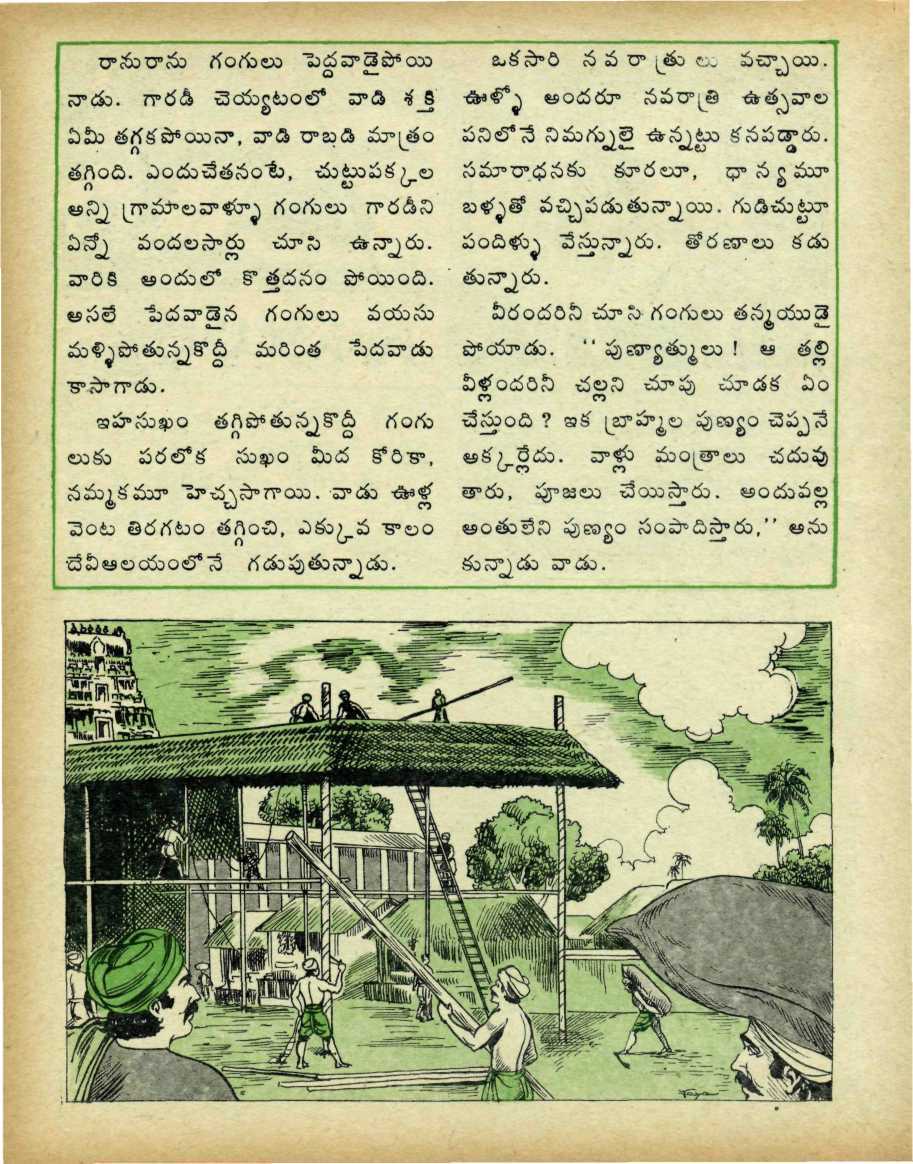 రానురాను గంగులు పెద్దవాడైపోయి
నాడు. గారడీ చెయ్యటంలో వాడి శక్తి
ఏమీ తగ్గకపోయినా, వాడి రాబడి మాత్రం
తగ్గింది. ఎందుచేతనంటే, చుట్టుపక్కల
అన్ని గ్రామాలవాళ్ళూ గంగులు గారడీని
ఏన్నో వందలసార్లు చూసి ఉన్నారు.
వారికి అందులో కొత్తదనం పోయింది.
అసలే పేదవాడైన గంగులు వయసు
మళ్ళిపోతున్నకొద్దీ మరింత పేదవాడు
కాసాగాడు.
ఇహసుఖం తగ్గిపోతున్నకొద్దీ గంగు
లుకు పరలోక సుఖం మీద కోరికా,
నమ్మకమూ హెచ్చసాగాయి. వాడు ఊళ్ల
వెంట తిరగటం తగ్గించి, ఎక్కువ కాలం
దేవీఆలయంలోనే గడుపుతున్నాడు.
ఒకసారి నవరాత్రులు వచ్చాయి.
ఊళ్ళో అందరూ నవరాత్రి ఉత్సవాల
పనిలోనే నిమగ్నులై ఉన్నట్టు కనపడ్డారు.
సమారాధనకు కూరలూ, ధాన్యమూ
బళ్ళతో వచ్చిపడుతున్నాయి. గుడిచుట్టూ
పందిళ్ళు వేస్తున్నారు. తోరణాలు కడు
తున్నారు.
వీరందరినీ చూసి గంగులు తన్మయుడై
పోయాడు. ''పుణ్యాత్ములు! ఆ తల్లి
వీళ్లందరినీ చల్లని చూపు చూడక ఏం
చేస్తుంది? ఇక బ్రాహ్మల పుణ్యం చెప్పనే
అక్కర్లేదు. వాళ్లు మంత్రాలు చదువు
తారు, పూజలు చేయిస్తారు. అందువల్ల
అంతులేని పుణ్యం సంపాదిస్తారు,'' అను
కున్నాడు వాడు.